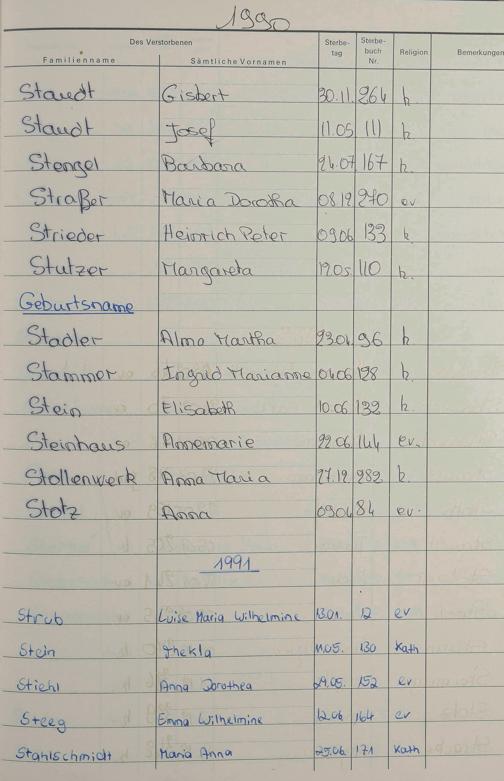 1990
Des Verstorbenen
Familienname Sämtliche Vornamen Sterbe-tag Sterbe-buch Nr. Religion Bemerkungen
Staudt Gisbert 30.11. 264 k.
Staudt Josef 11.05 111 k.
Stengel Barbara 24.07 167 k.
Straßer Maria Dorothea 08.12 270 ev
Strieder Heinrich Peter 09.06 133 k.
Stutzer Margareta 12.05 110 k.
Geburtsname
Stadler Alma Martha 23.04 96 k
Stammer Ingrid Marianne 04.06 128 k.
Stein Elisabeth 10.06 132 k.
Steinhaus Annemarie 22.06 144 ev.
Stollenwerk Anna Maria 27.12. 282 k.
Stolz Anna 09.04 84 ev.
1991
Strub Luise Maria Wilhelmine 13.01. 12 ev
Stein Thekla 11.05. 130 Kath
Stiehl Anna Dorothea 29.05. 152 ev
Steeg Emma Wilhelmine 12.06 164 ev
Stahlschmidt Maria Anna 25.06. 171 Kath